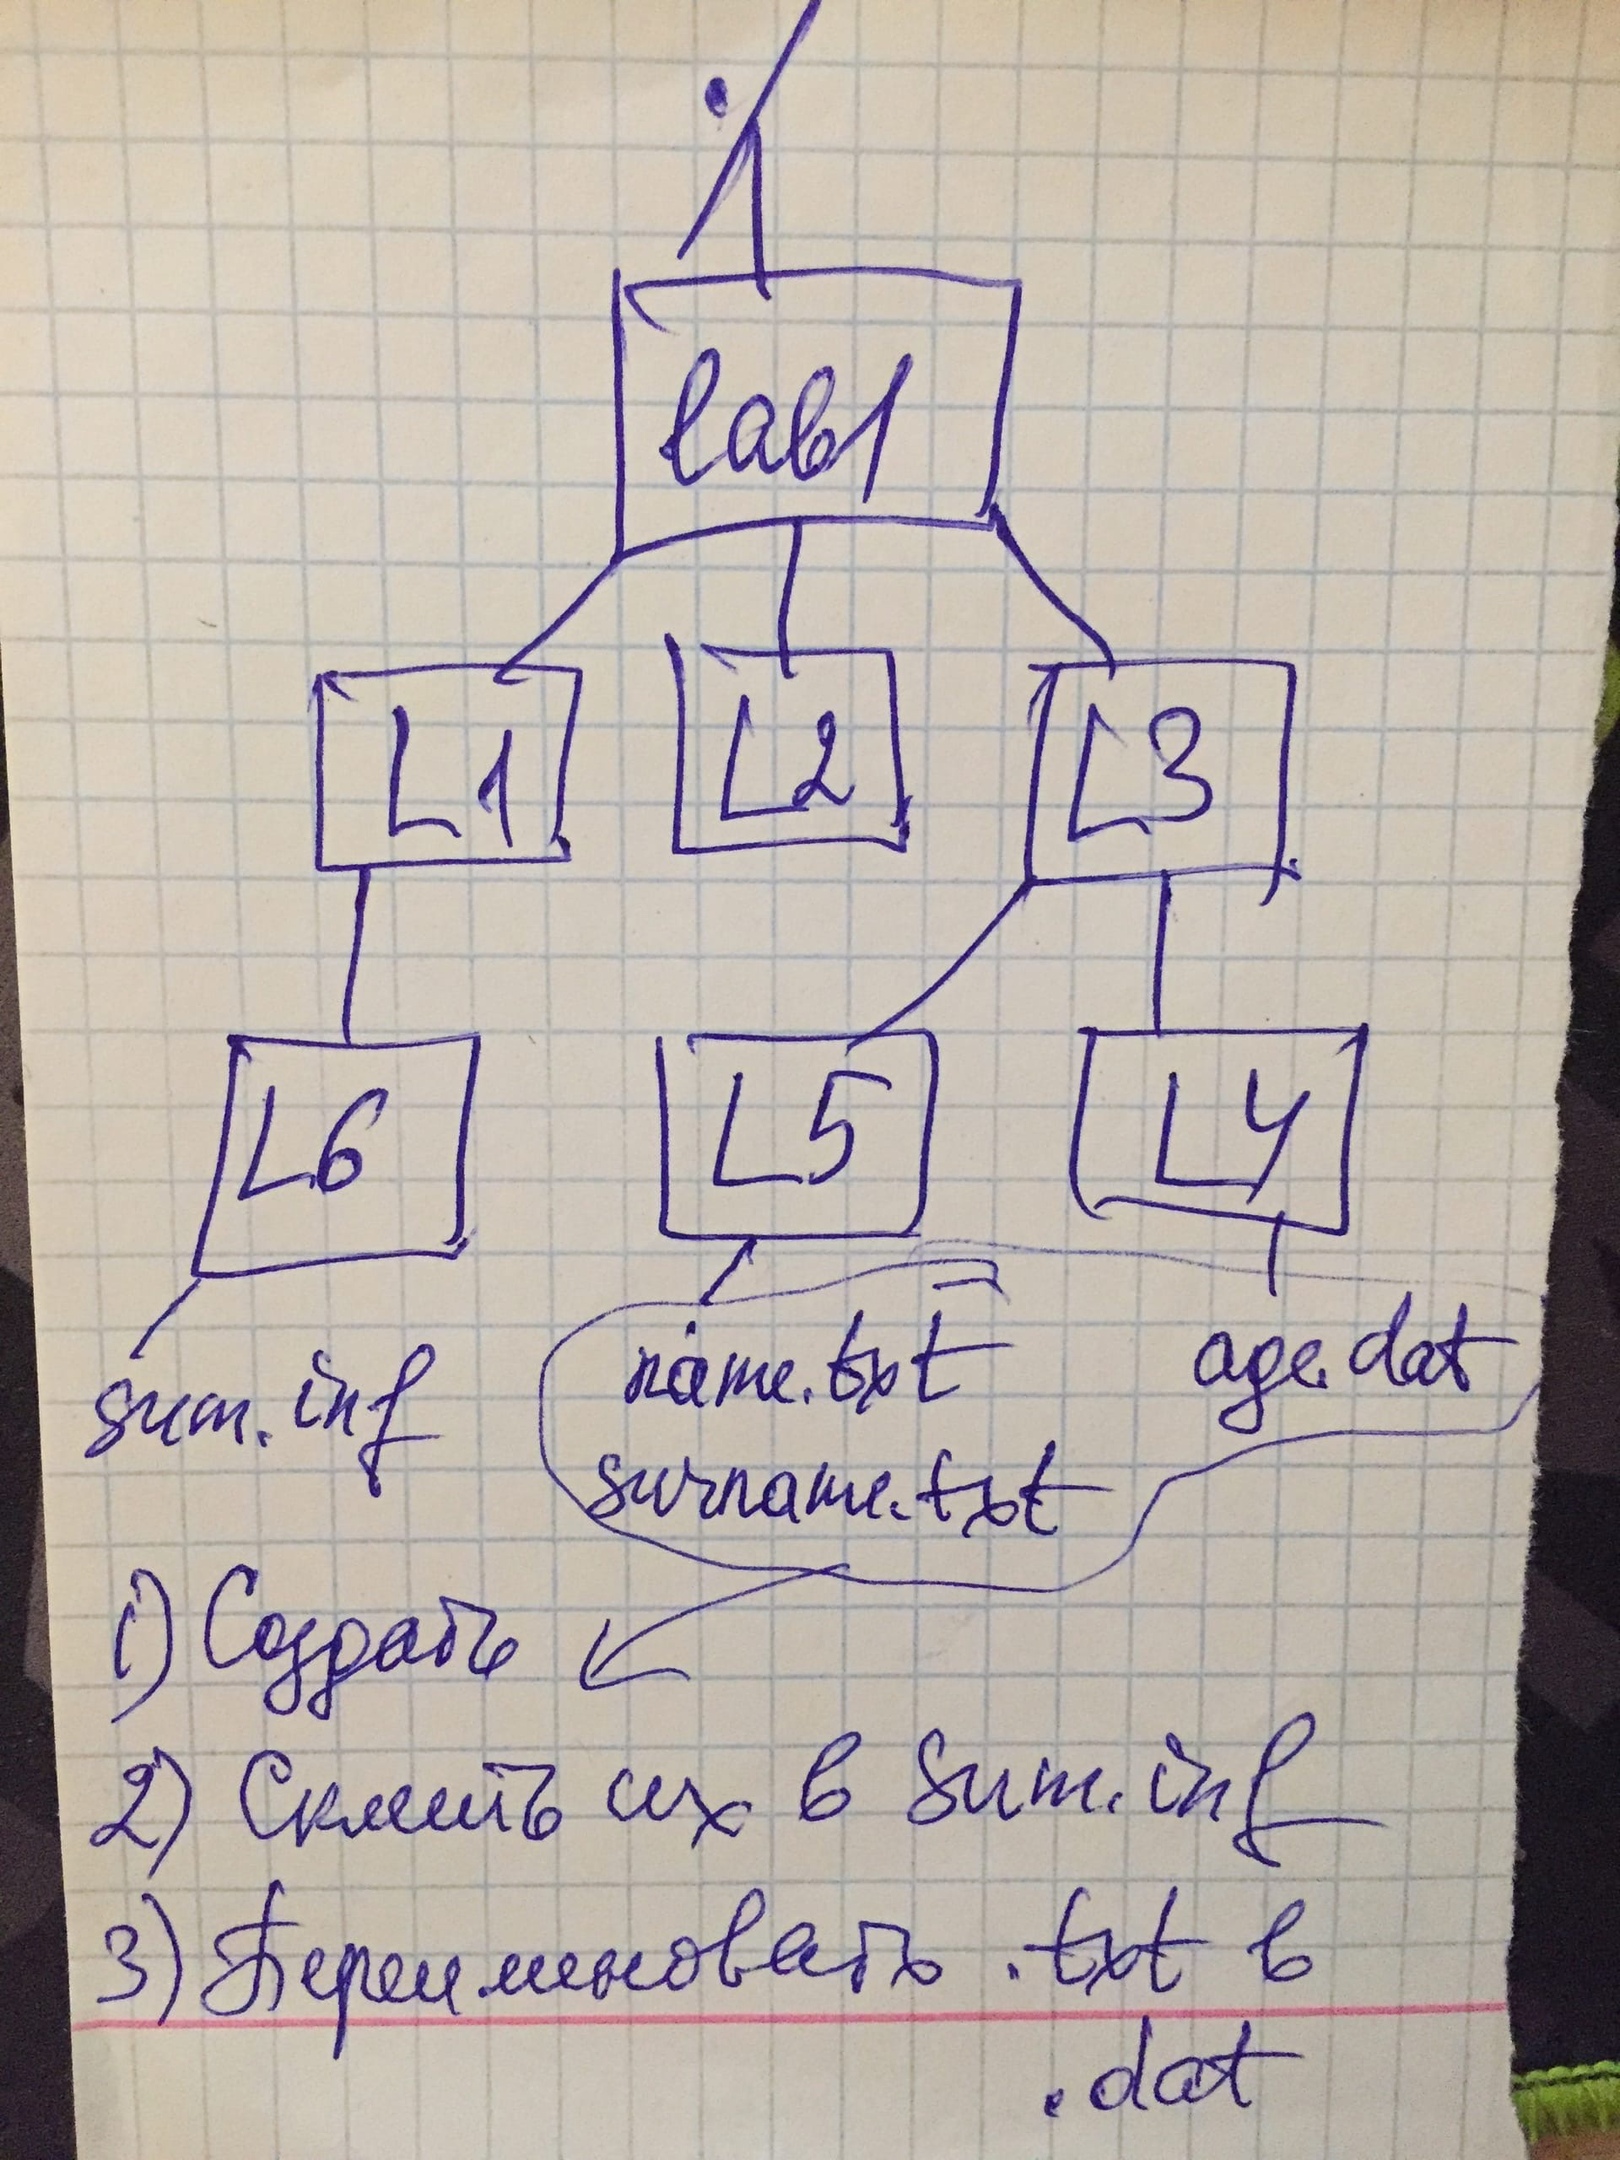 ./
lab1
L1 L2 L3
L6 L5 L4
sum.inf name.txt age.dat
surname.txt
1) Создать
2) Склеить их в sum.inf
3) Переименовать .txt в
.dat